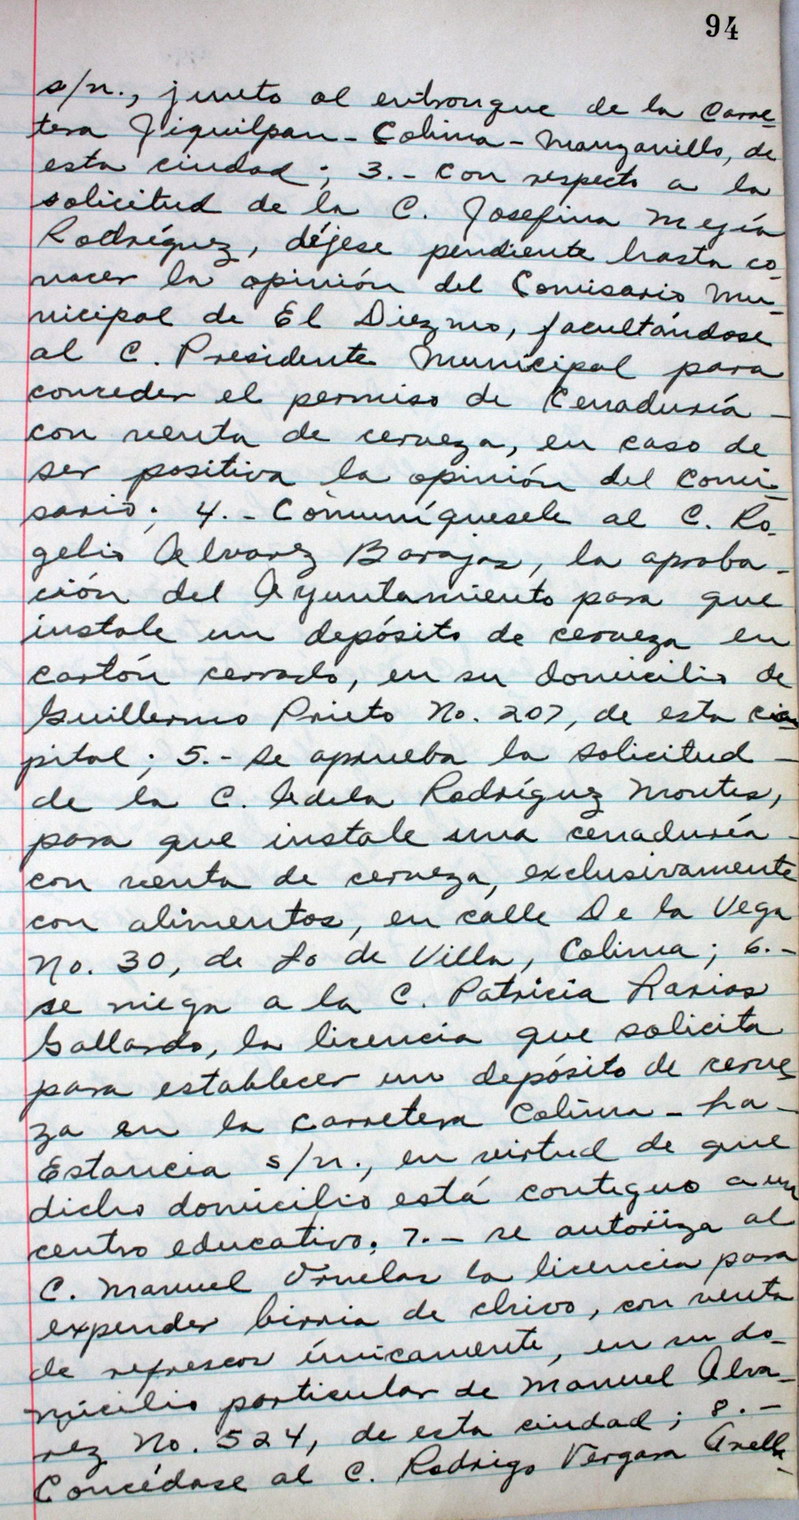 94
s/n., junto al entronque de la Carre-
tera Jiquilpan - Colima - Manzanillo, de
esta ciudad; 3.- Con respecto a la
solicitud de la C. Josefina Mejía
Rodríguez, déjese pendiente hasta co-
nocer la opinión del Comisario Mu-
nicipal de El Diezmo, facultándose
al C. Presidente Municipal para
conceder el permiso de Cenaduría -
con venta de cerveza, en caso de
ser positiva la opinión del Comi-
sario; 4.- Comuníquesele al C. Ro-
gelio Alvarez Barajas, la aproba-
ción del Ayuntamiento para que
instale un depósito de cerveza en
cartón cerrado, en su domicilio de
Guillermo Prieto No. 207, de esta ca-
pital; 5.- Se aprueba la solicitud -
de la C. Adela Rodríguez Montes,
para que instale una cenaduría -
con venta de cerveza, exclusivamente
con alimentos, en calle De la Vega
No. 30, de Lo de Villa, Colima; 6.-
se niega a la C. Patricia Larios
Gallardo, la licencia que solicita
para establecer un depósito de cerve-
za en la carretera Colima - La -
Estancia s/n., en virtud de que
dicho domicilio está contiguo a un
centro educativo; 7.- se autoriza al
C. Manuel Ornelas la licencia para
expender birria de chivo, con venta
de refrescos únicamente, en su do-
micilio particular de Manuel Alva-
rez No. 524, de esta ciudad; 8.-
Concédase al C. Rodrigo Vergara